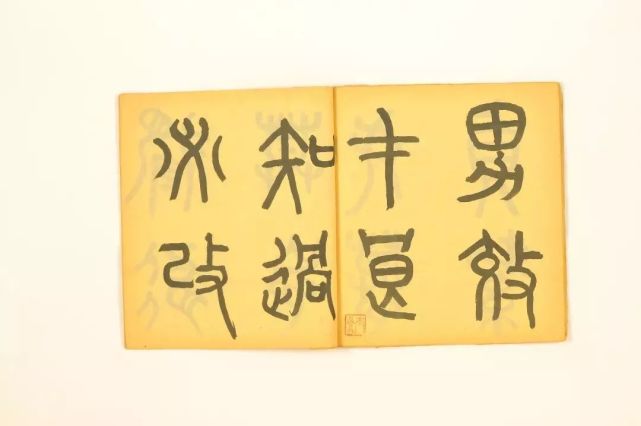 男效
才良
知過
必改